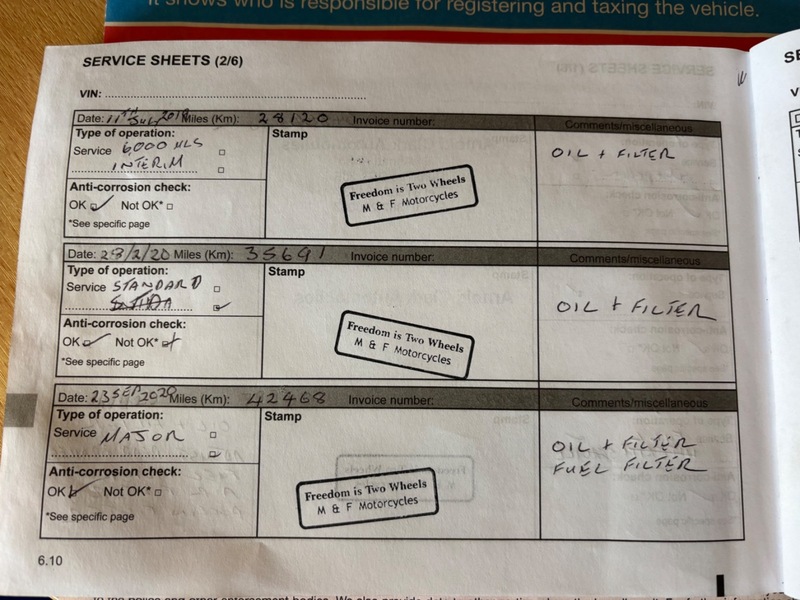 It shows who is responsible for registering and taxing the vehicle.
SERVICE SHEETS (2/6)
VIN:
Date: 11TH July 2019 Miles (Km): 28120 Invoice number:
Comments/miscellaneous
Type of operation:
Service 6,000 MLS
INTERIM
Anti-corrosion check:
OK Not OK*
*See specific page
Stamp
Freedom is Two Wheels
M & F Motorcycles
OIL + FILTER
Date: 28/2/20 Miles (Km): 35691 Invoice number:
Comments/miscellaneous
Type of operation:
Service STANDARD
Anti-corrosion check:
OK Not OK*
*See specific page
Stamp
Freedom is Two Wheels
M & F Motorcycles
OIL + FILTER
Date: 23 SEP 2020 Miles (Km): 42468 Invoice number:
Comments/miscellaneous
Type of operation:
Service MAJOR
Anti-corrosion check:
OK Not OK*
*See specific page
Stamp
Freedom is Two Wheels
M & F Motorcycles
OIL + FILTER
FUEL FILTER
6.10